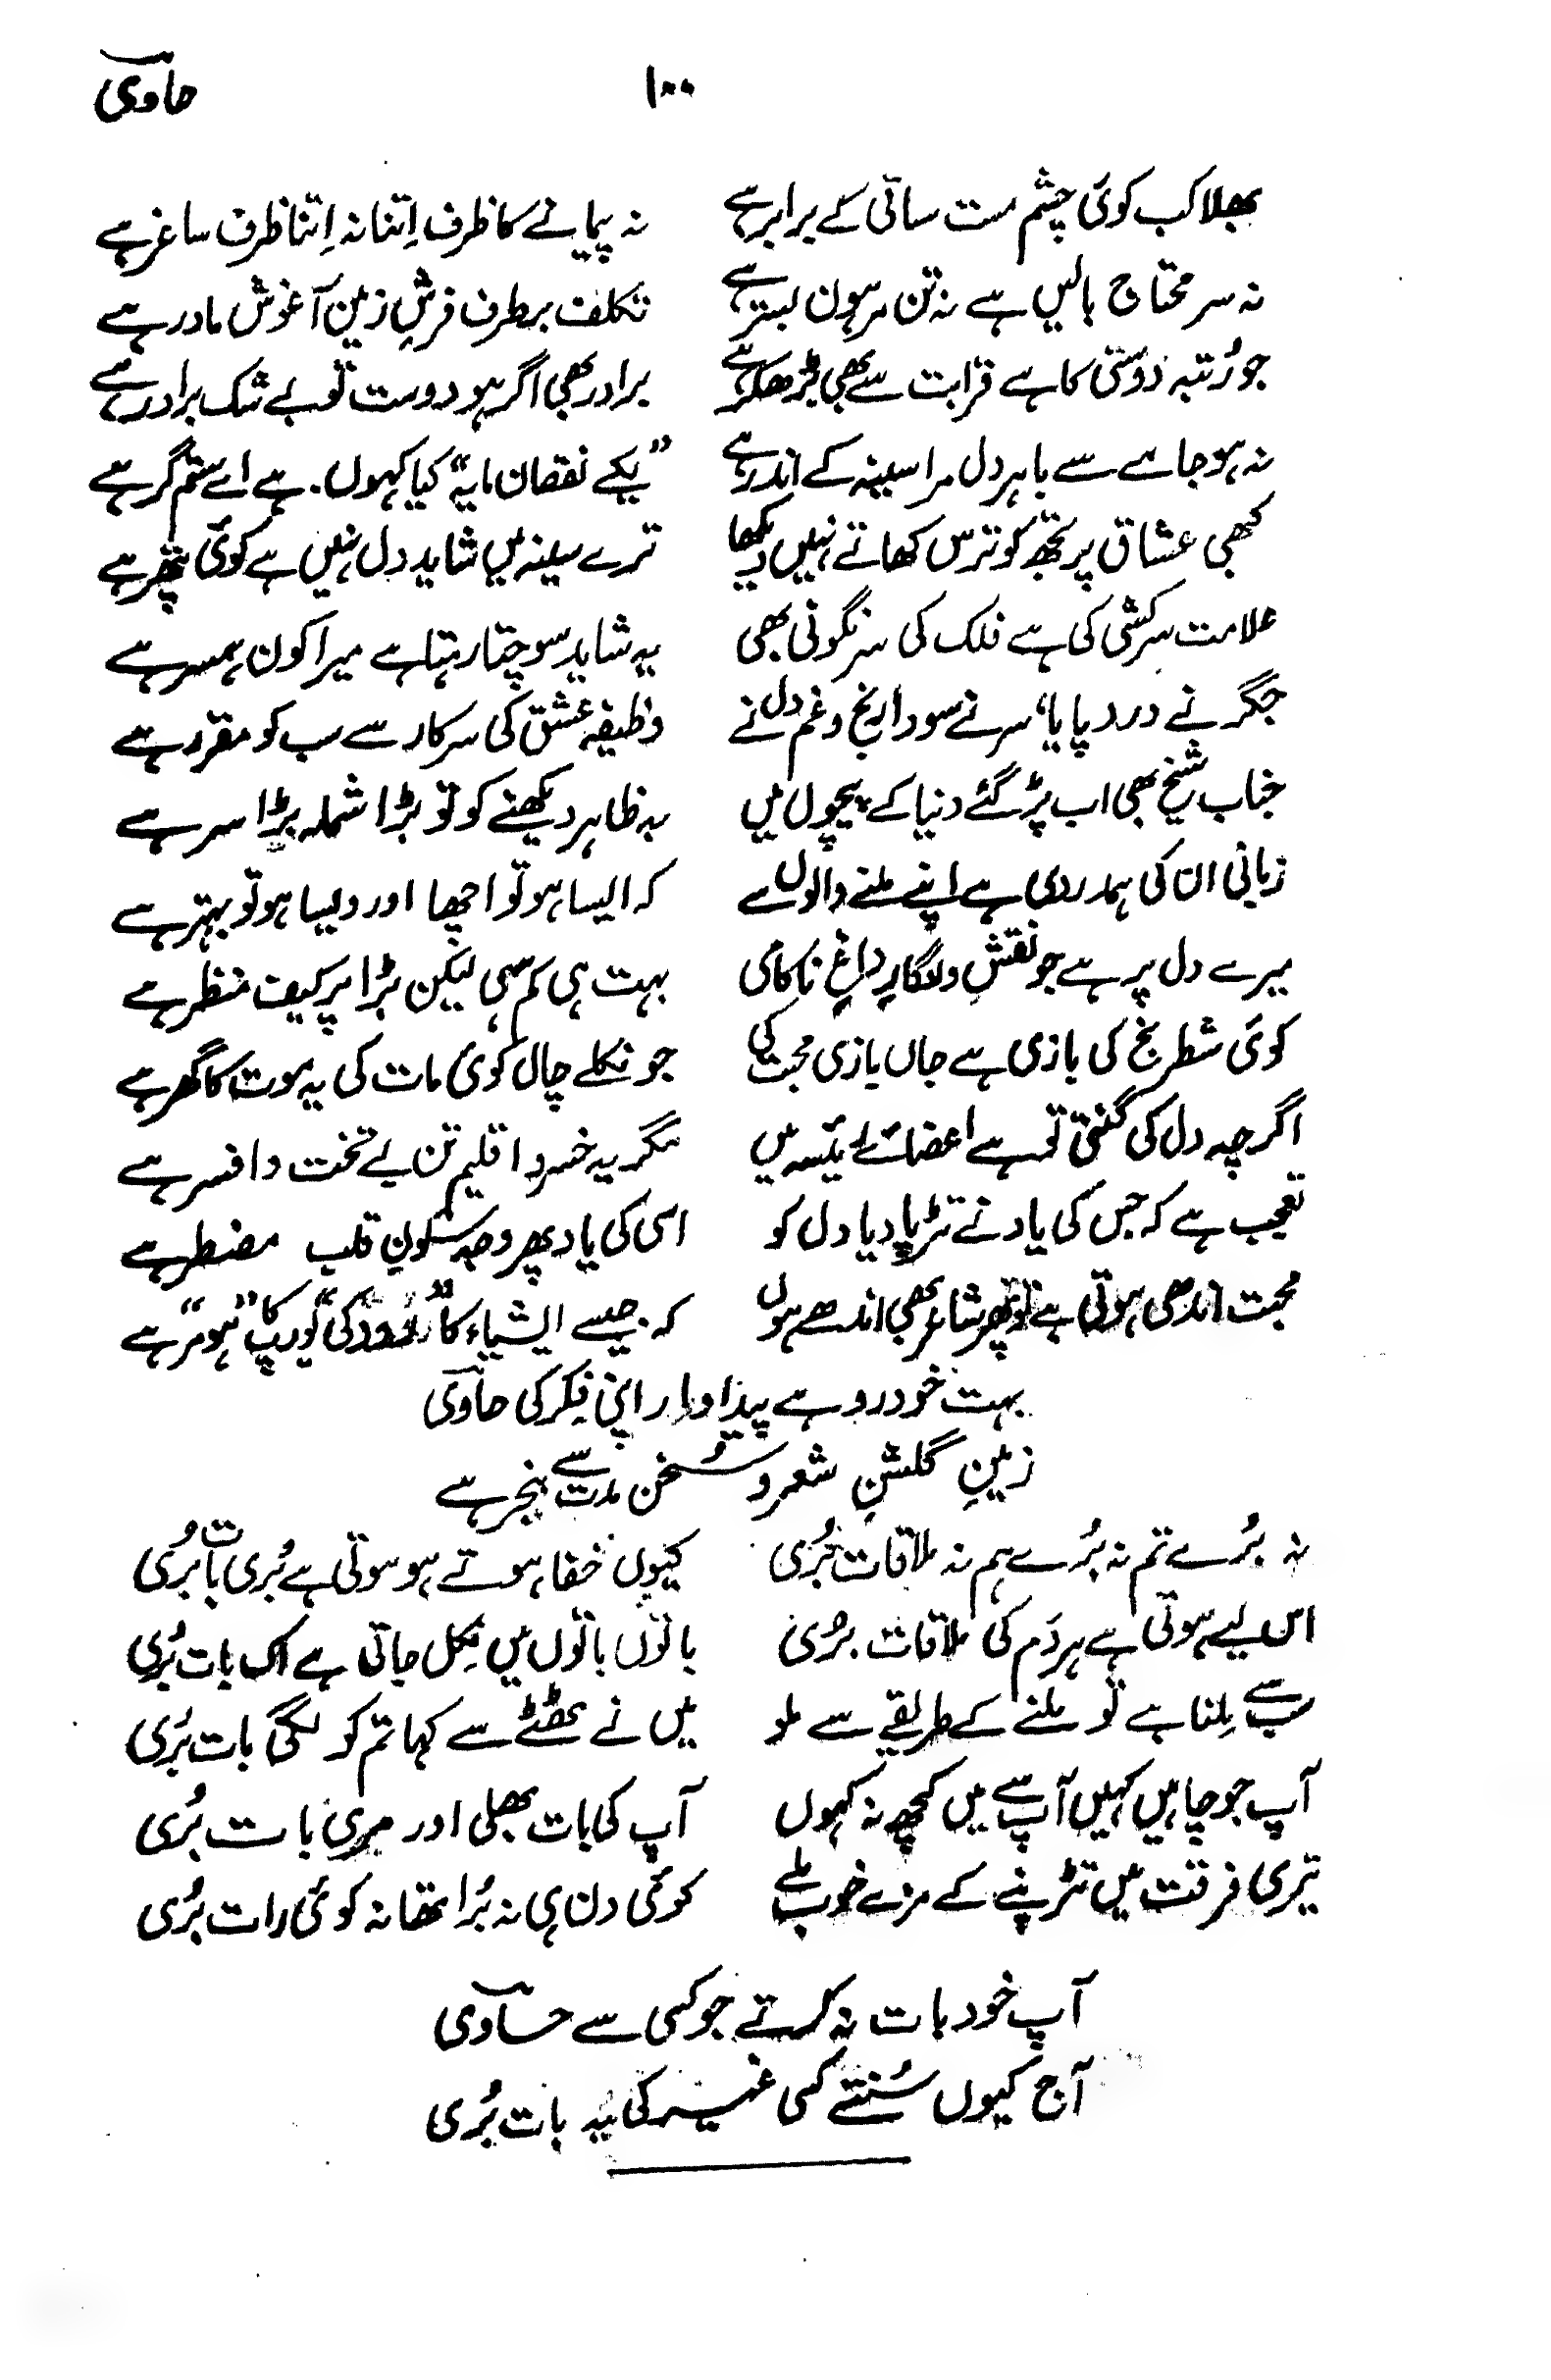 ۱۰۰ حاوی
بھلا کب کوئی چشم مست ساقی کے برابر ہے نہ پیمانے کا ظرف اِتنا نہ اِتنا ظرف ساغر ہے
نہ سر محتاج بالیں ہے نہ تن مرہون بستر ہے تکلف برطرف فرشِ زمین آغوش مادر ہے
جو رُتبہ دوستی کا ہے قرابت سے بھی بڑھکر ہے برادر بھی اگر ہو دوست تو بے شک برادر ہے
نہ ہو جامے سے باہر دل مرا سینہ کے اندر ہے ”یکے نقصان مایہ“ کیا کہوں۔ ہے اے ستم گر ہے
کبھی عشاق پر تجھ کو ترس کھاتے نہیں دیکھا ترے سینہ میں شاید دل نہیں ہے کوئی پتھر ہے
علامت سرکشی کی ہے فلک کی سرنگونی بھی یہ شاید سوچتا رہتا ہے میرا کون ہمسر ہے
جگر نے درد پایا، سر نے سودا رنج و غم دل نے وظیفہ عشق کی سرکار سے سب کو مقرر ہے
جناب شیخ بھی اب پڑ گئے دنیا کے پیچوں میں بہ ظاہر دیکھنے کو تو بڑا شملہ بڑا سر ہے
زبانی ان کی ہمدردی ہے اپنے ملنے والوں سے کہ ایسا ہو تو اچھا اور ویسا ہو تو بہتر ہے
میرے دل پر ہے جو نقشِ دلفگارِ داغِ ناکامی بہت ہی کم سہی لیکن بڑا پر کیف منظر ہے
کوئی شطرنج کی بازی ہے جاں بازی محبت کی جو نکلے چال کوئی مات کی یہ موت کا گھر ہے
اگرچہ دل کی گنتی تو ہے اعضائے رئیسہ میں مگر یہ خسروِ اقلیم تن بے تخت و افسر ہے
تعجب ہے کہ جس کی یاد نے تڑپا دیا دل کو اسی کی یاد پھر وجہِ سکونِ قلب مضطر ہے
محبت اندھی ہوتی ہے تو پھر شاعر بھی اندھے ہوں کہ جیسے ایشیاء کا ”رُودکی“ یورپ کا ”ہومر“ ہے
بہت خود رو ہے پیداوار اپنی فکر کی حاوی
زمینِ گلشنِ شعر و سُخن مدت سے بنجر ہے
نہ بُرے تم نہ بُرے ہم نہ ملاقات بُری کیوں خفا ہوتے ہو ہوتی ہے بُری بات بُری
اس لیے ہوتی ہے ہر دَم کی ملاقات بُری باتوں باتوں میں نکل جاتی ہے اک بات بُری
سب سے مِلنا ہے تو ملنے کے طریقے سے ملو میں نے ٹھٹھے سے کہا تم کو لگی بات بُری
آپ جو چاہیں کہیں آپ سے میں کچھ نہ کہوں آپ کی بات بھلی اور مری بات بُری
تیری فرقت میں تڑپنے کے مزے خوب ملے کوئی دن ہی نہ بُرا تھا نہ کوئی رات بُری
آپ خود بات نہ کرتے جو کسی سے حاوی
آج کیوں سُنتے کسی غیر کی یہ بات بُری